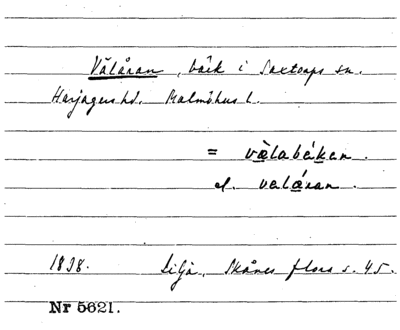 Välåran, bäck i Saxtorps sn.
Harjagers hd. Malmöhus l.
= välabäken.
el. valåran.
1838. Lilja, Skånes flora s. 45.
Nr 5621.